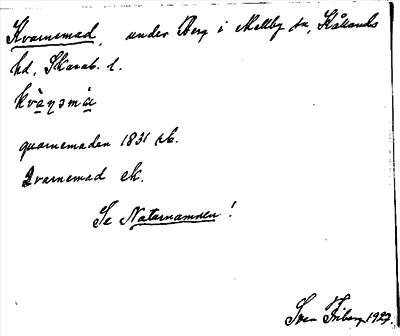 Kvarnemad, under Berg i Mellby sn, Kållands
hd, Skarab. l.
kvàɳəmá
quarnemaden 1831 hk.
Qvarnemad ek.
Se Naturnamnen!
Sven Friberg 1927.